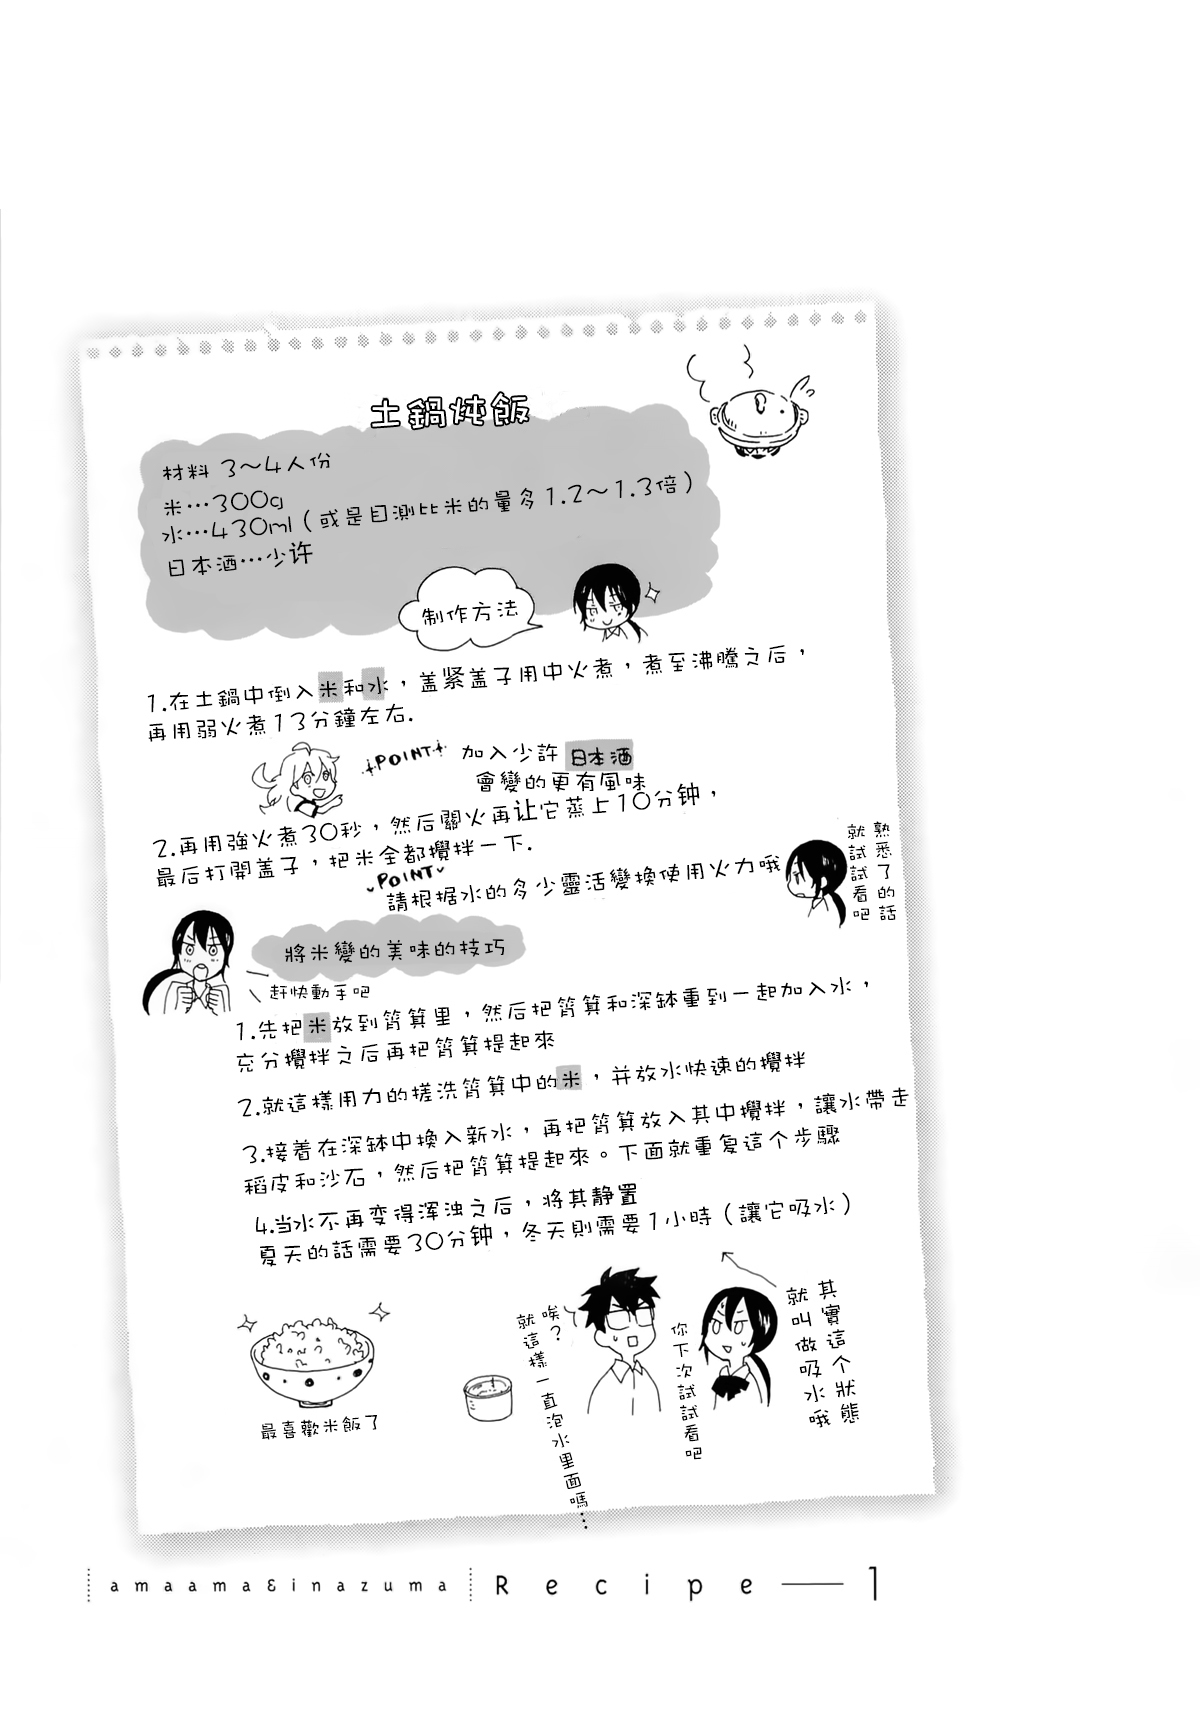 土鍋炖飯
材料 3～4人份
米…300g
水…430ml（或是目測比米的量多1.2～1.3倍）
日本酒…少许
制作方法
1.在土鍋中倒入米和水，盖紧盖子用中火煮，煮至沸騰之后，
再用弱火煮13分鐘左右.
POINT
加入少許 日本酒
會變的更有風味
2.再用強火煮30秒，然后關火再让它蒸上10分钟，
最后打開盖子，把米全都攪拌一下.
POINT
請根据水的多少靈活變換使用火力哦
熟悉了的話
就試試看吧
將米變的美味的技巧
赶快動手吧
1.先把米放到筲箕里，然后把筲箕和深缽重到一起加入水，
充分攪拌之后再把筲箕提起來
2.就這樣用力的搓洗筲箕中的米，并放水快速的攪拌
3.接着在深缽中換入新水，再把筲箕放入其中攪拌，讓水帶走
稻皮和沙石，然后把筲箕提起來。下面就重复這个步驟
4.当水不再变得浑浊之后，將其静置
夏天的話需要30分钟，冬天則需要1小時（讓它吸水）
其實這个狀態
就叫做吸水哦
你下次試試看吧
唉？
就這樣一直泡水里面嗎…
最喜歡米飯了
amaama&inazuma
Recipe — 1